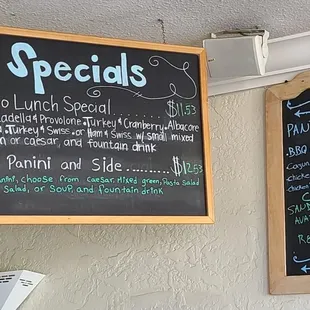 Specials
o Lunch Special $11.53
adella & Provolone • Turkey & Cranberry • Albacore
Turkey & Swiss or Ham & Swiss w/ small mixed
n or caesar, and fountain drink
Panini and Side $12.53
anini, choose from caesar, mixed green, Pasta Salad
Salad, or soup and fountain drink
PAN
BBQ
Cajun
Chicke
Chicke
SAND
AVA